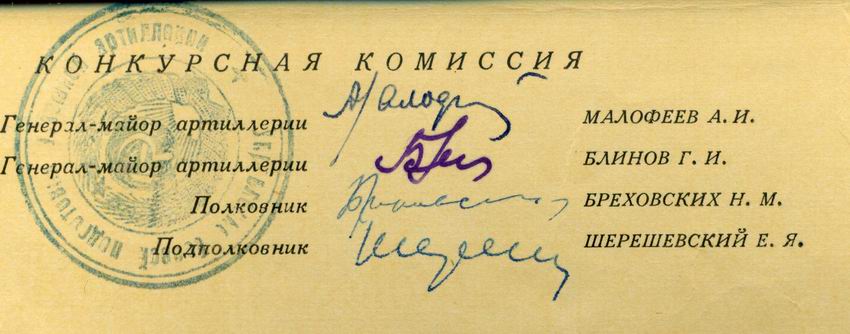 КОНКУРСНАЯ КОМИССИЯ
Генерал-майор артиллерии МАЛОФЕЕВ А. И.
Генерал-майор артиллерии БЛИНОВ Г. И.
Полковник БРЕХОВСКИХ Н. М.
Подполковник ШЕРЕШЕВСКИЙ Е. Я.